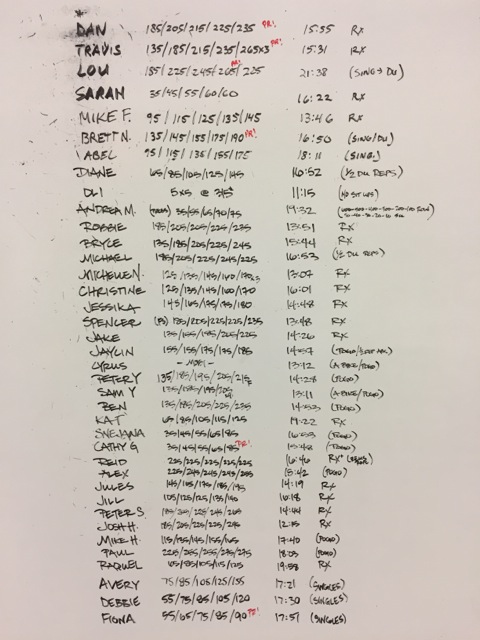 DAN 185/205/215/225/235 PR! 15:55 RX
TRAVIS 135/185/215/235/265x3 PR! 15:31 RX
LOU 185/225/245/265/ PR! 21:38 (SING→DU)
SARAH 35/45/55/60/60 16:22 RX
MIKE F. 95/115/125/135/145 13:46 RX
BRETT N. 135/145/155/175/190 PR! 16:50 (SING/DU)
ABEL 95/115/135/155/175 18:11 (SING.)
DIANE 65/85/105/125/145 16:52 (1/2 DU REPS)
OLI 5x5 @ 315 11:15 (NO SIT UPS)
ANDREA M. 35/55/65/70/75 19:32
ROBBIE 185/205/205/225/235 13:51 RX
BRYCE 135/185/205/225/245 15:44 RX
MICHAEL 185/205/225/245/225 16:53 (1/2 DU REPS)
MICHELLE N. 125/135/145/160/170 13:07 RX
CHRISTINE 125/135/145/160/170 16:01 RX
JESSIKA 145/165/175/175/180 14:48 RX
SPENCER 185/205/225/225/235 13:48 RX
JAKE 14:26 RX
JAYLIN 155/155/175/175/185 14:57
CYRUS 13:12
PETER Y 135/185/195/205/215 14:28 (POGO)
SAM Y 13:11
BEN 135/185/205/225/235 14:53 (POGO)
KAT 65/85/105/115/125 19:22 RX
SNEJANA 35/45/55/65/85 16:53 (POGO)
CATHY G 35/45/55/65/85 PR! 15:48 (POGO)
REID 225/225/225/225/225 16:46 RX
ALEX 225/245/245/245/205 15:42 (POGO)
JULES 145/165/175/185/195 14:19 RX
JILL 105/125/125/135/140 16:18 RX
PETER S 14:44 RX
JOSH H. 185/205/225/225/245 12:15 RX
MIKE H. 115/135/145/155/165 17:40 (POGO)
PAUL 225/255/255/275/275 18:03 (POGO)
RAQUEL 65/85/105/115/125 19:58 RX
AVERY 75/85/105/125/135 17:21 (SINGLES)
DEBBIE 55/75/85/105/120 17:30 (SINGLES)
FIONA 55/65/75/85/90 PR! 17:51 (SINGLES)